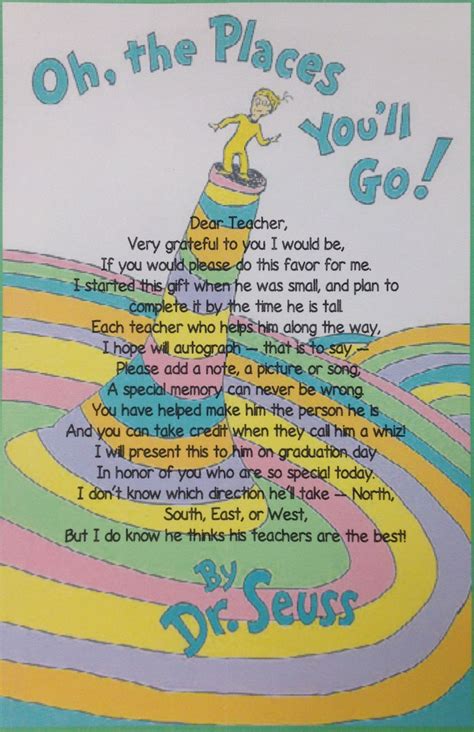 Oh, the Places
You'll
Go!
Dear Teacher,
Very grateful to you I would be,
If you would please do this favor for me.
I started this gift when he was small, and plan to
complete it by the time he is tall.
Each teacher who helps him along the way,
I hope will autograph – that is to say –
Please add a note, a picture or song,
A special memory can never be wrong.
You have helped make him the person he is
And you can take credit when they call him a whiz!
I will present this to him on graduation day
In honor of you who are so special today.
I don't know which direction he'll take – North,
South, East, or West,
But I do know he thinks his teachers are the best!
By
Dr. Seuss